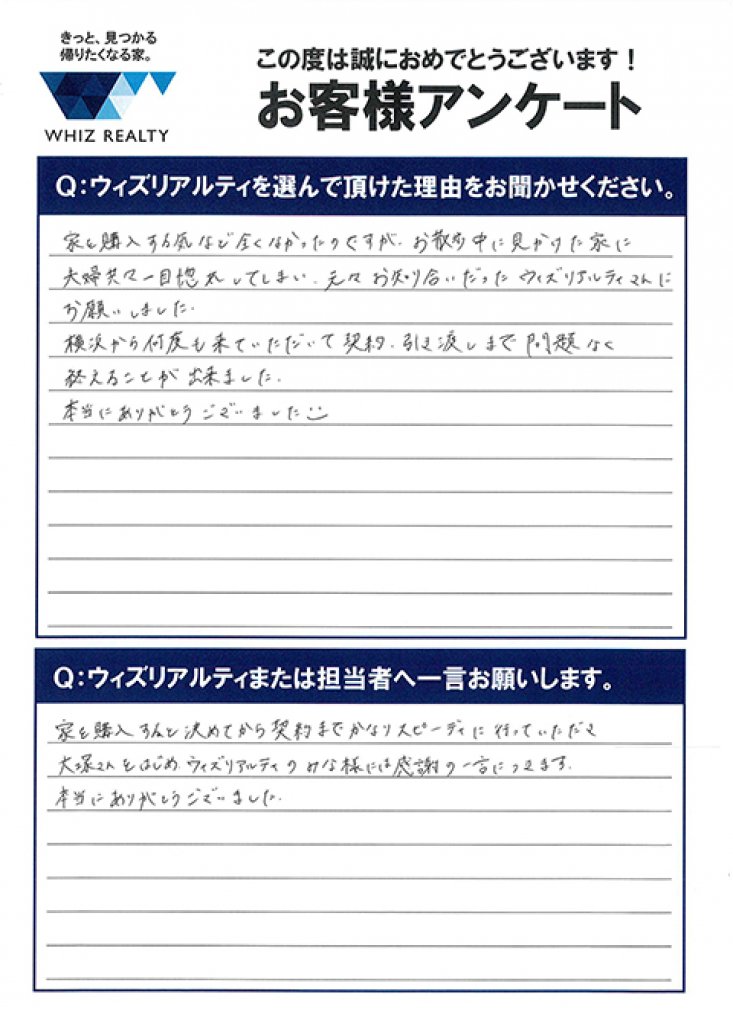 きっと、見つかる
帰りたくなる家。
WHIZ REALTY
この度は誠におめでとうございます！
お客様アンケート
Q：ウィズリアルティを選んで頂けた理由をお聞かせください。
家を購入する気など全くなかったのですが、お散歩中に見かけた家に
夫婦共々一目惚れしてしまい、元々お知り合いだったウィズリアルティさんに
お願いしました。
横浜から何度も来ていただいて契約、引き渡しまで問題なく
終えることが出来ました。
本当にありがとうございました
Q：ウィズリアルティまたは担当者へ一言お願いします。
家を購入すると決めてから契約までかなりスピーディに行っていただき
大塚さんをはじめ、ウィズリアルティのみな様には感謝の一言につきます。
本当にありがとうございました。